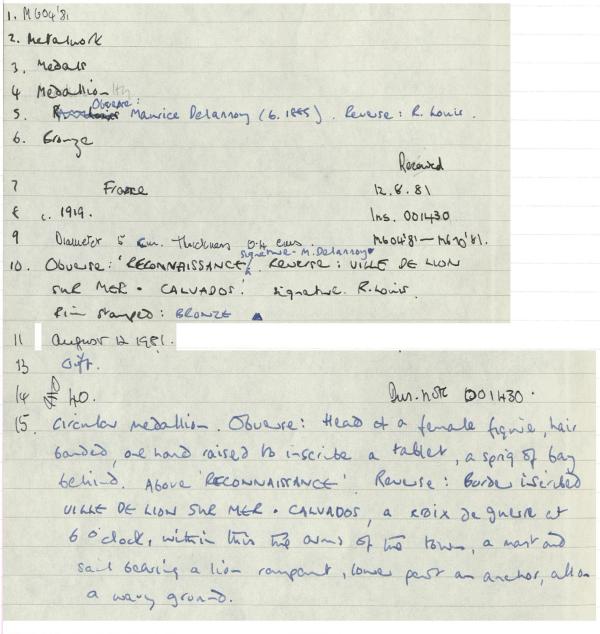 1. M604'81
2. Metalwork
3. Medals
4. Medallion
5. Obverse: Maurice Delannoy (b. 1885). Reverse: R. Louis.
6. Bronze
Received
7 France 12.8.81
8 c. 1919. Ins. 001430
9 Diameter 5 cm. Thickness 0.4 cms. M604'81 — M610'81.
10. Obverse: 'RECONNAISSANCE' signature - M. Delannoy. Reverse: VILLE DE LION
SUR MER • CALVADOS.' signature R. Louis.
Rim stamped: BRONZE
11 August 12 1981.
13 Gift.
14 £40. Ins. note 001430.
15. Circular medallion. Obverse: Head of a female figure, hair
banded, one hand raised to inscribe a tablet, a sprig of bay
behind. Above 'RECONNAISSANCE'. Reverse: Border inscribed
VILLE DE LION SUR MER • CALVADOS, a croix de guerre at
6 o'clock, within this the arms of the town, a mast and
sail bearing a lion rampant, lower part an anchor, all on
a wavy ground.